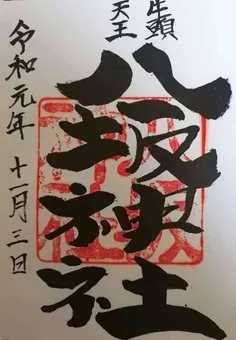 牛頭
天王
八坂神社
令和元年十一月三日